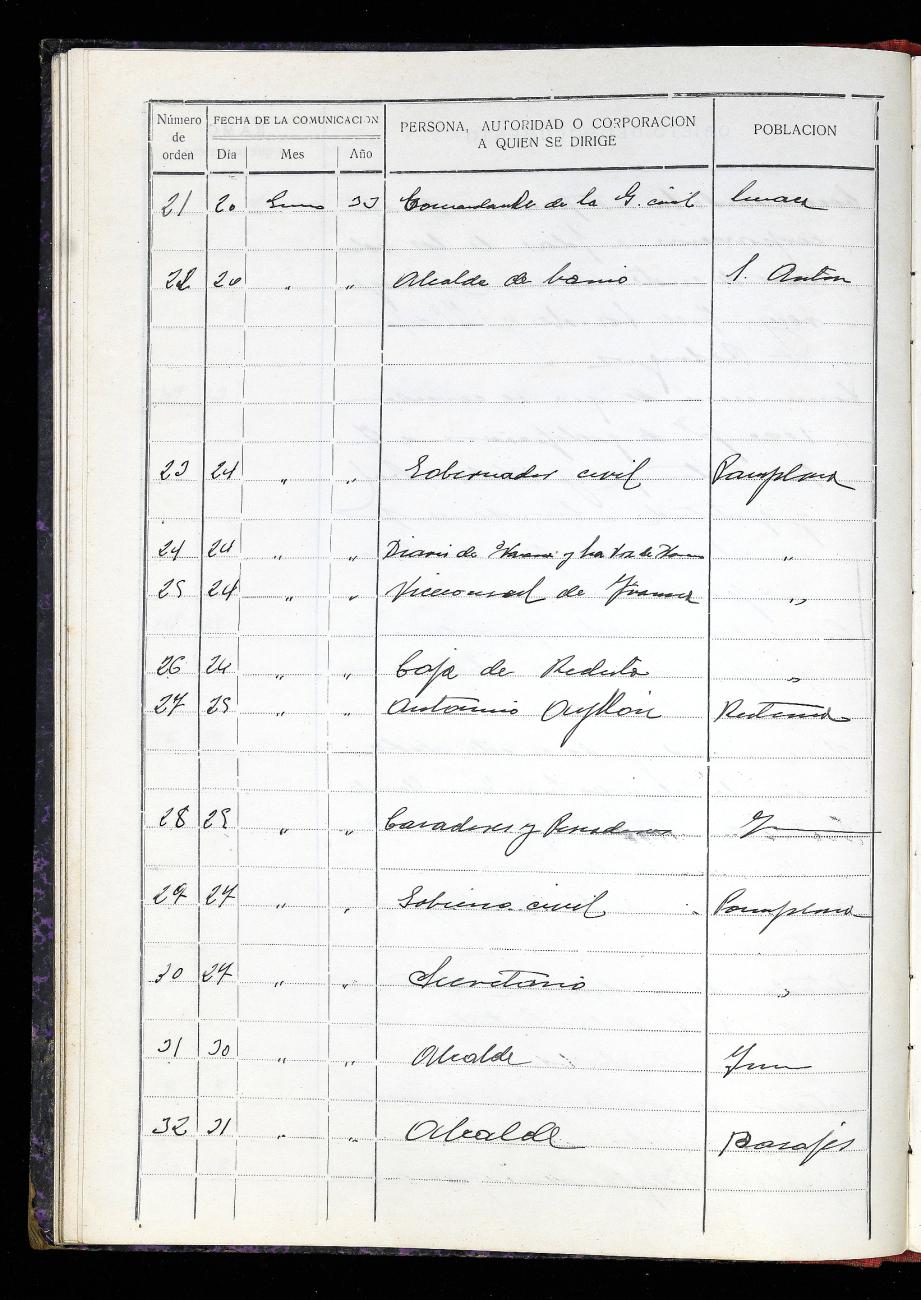 Número de orden | FECHA DE LA COMUNICACION | PERSONA, AUTORIDAD O CORPORACION A QUIEN SE DIRIGE | POBLACION
Día | Mes | Año
21 20 Enero 33 Comandante de la G. civil
22 20 " " Alcalde de barrio S. Anton
23 24 " " Gobernador civil Pamplona
24 24 " " Diario de Navarra y La Voz de Navarra "
25 24 " " Viceconsul de Francia "
26 24 " " Caja de Recluta "
27 25 " " Antonio Ayllón
28 25 " " Cazadores y Pescadores Irun
29 27 " " Gobierno civil Pamplona
30 27 " " Secretario "
31 30 " " Alcalde Irun
32 31 " " Alcalde Pasajes